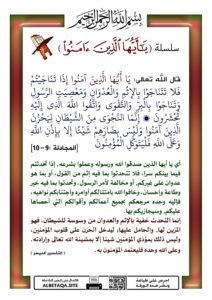 بسم الله الرحمن الرحيم
سلسلة ﴿يَٰٓأَيُّهَا ٱلَّذِينَ ءَامَنُوٓاْ﴾
قال الله تعالى: يَا أَيُّهَا الَّذِينَ آمَنُوا إِذَا تَنَاجَيْتُمْ
فَلَا تَتَنَاجَوْا بِالْإِثْمِ وَالْعُدْوَانِ وَمَعْصِيَتِ الرَّسُولِ
وَتَنَاجَوْا بِالْبِرِّ وَالتَّقْوَى وَاتَّقُوا اللَّهَ الَّذِي إِلَيْهِ
تُحْشَرُونَ ۞ إِنَّمَا النَّجْوَى مِنَ الشَّيْطَانِ لِيَحْزُنَ
الَّذِينَ آمَنُوا وَلَيْسَ بِضَارِّهِمْ شَيْئًا إِلَّا بِإِذْنِ اللَّهِ
وَعَلَى اللَّهِ فَلْيَتَوَكَّلِ الْمُؤْمِنُونَ [المجادلة :9 – 10]
أي يا أيها الذين صدقوا الله ورسوله وعملوا بشرعه، إذا تحدثتم
فيما بينكم سرا، فلا تتحدثوا بما فيه إثم من القول، أو بما هو
عدوان على غيركم، أو مخالفة لأمر الرسول، وتحدثوا بما فيه خير
وطاعة وإحسان، وخافوا الله بامتثالكم أوامره واجتنابكم نواهيه،
فإليه وحده مرجعكم بجميع أعمالكم وأقوالكم التي أحصاها
عليكم، وسيجازيكم بها.
إنما التحدث خفية بالإثم والعدوان من وسوسة الشيطان، فهو
المزين لها، والحامل عليها، ليدخل الحزن على قلوب المؤمنين،
وليس ذلك بمؤذي المؤمنين شيئا إلا بمشيئة الله تعالى وإرادته.
وعلى الله وحده فليعتمد المؤمنون به. ( التفسير الميسر )
ALBETAQA.SITE